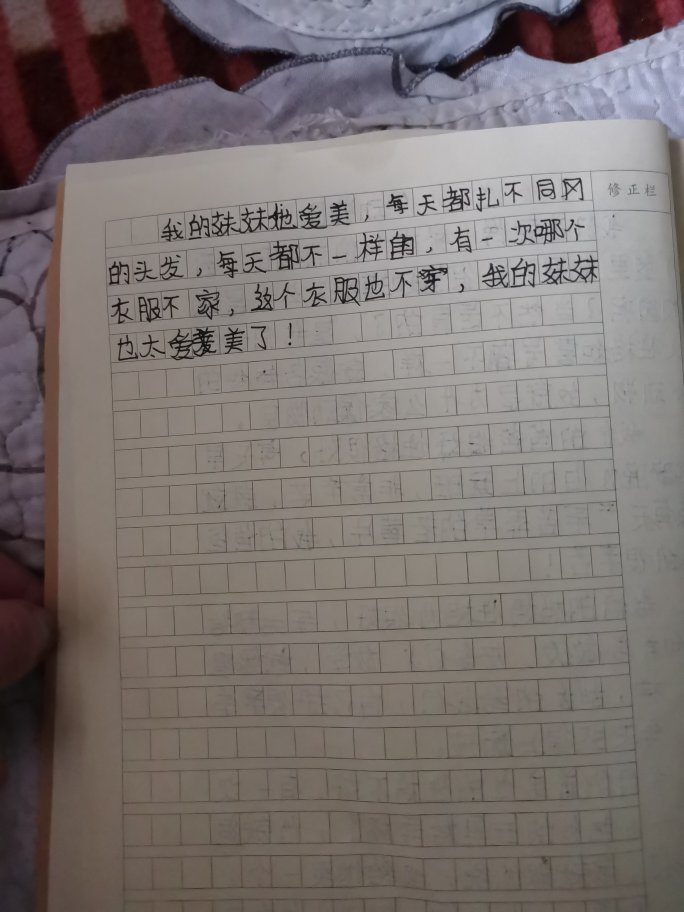 修正栏
我的妹妹她爱美，每天都扎不同
的头发，每天都不一样的，有一次哪个
衣服不家，这个衣服也不穿，我的妹妹
也太爱美了！